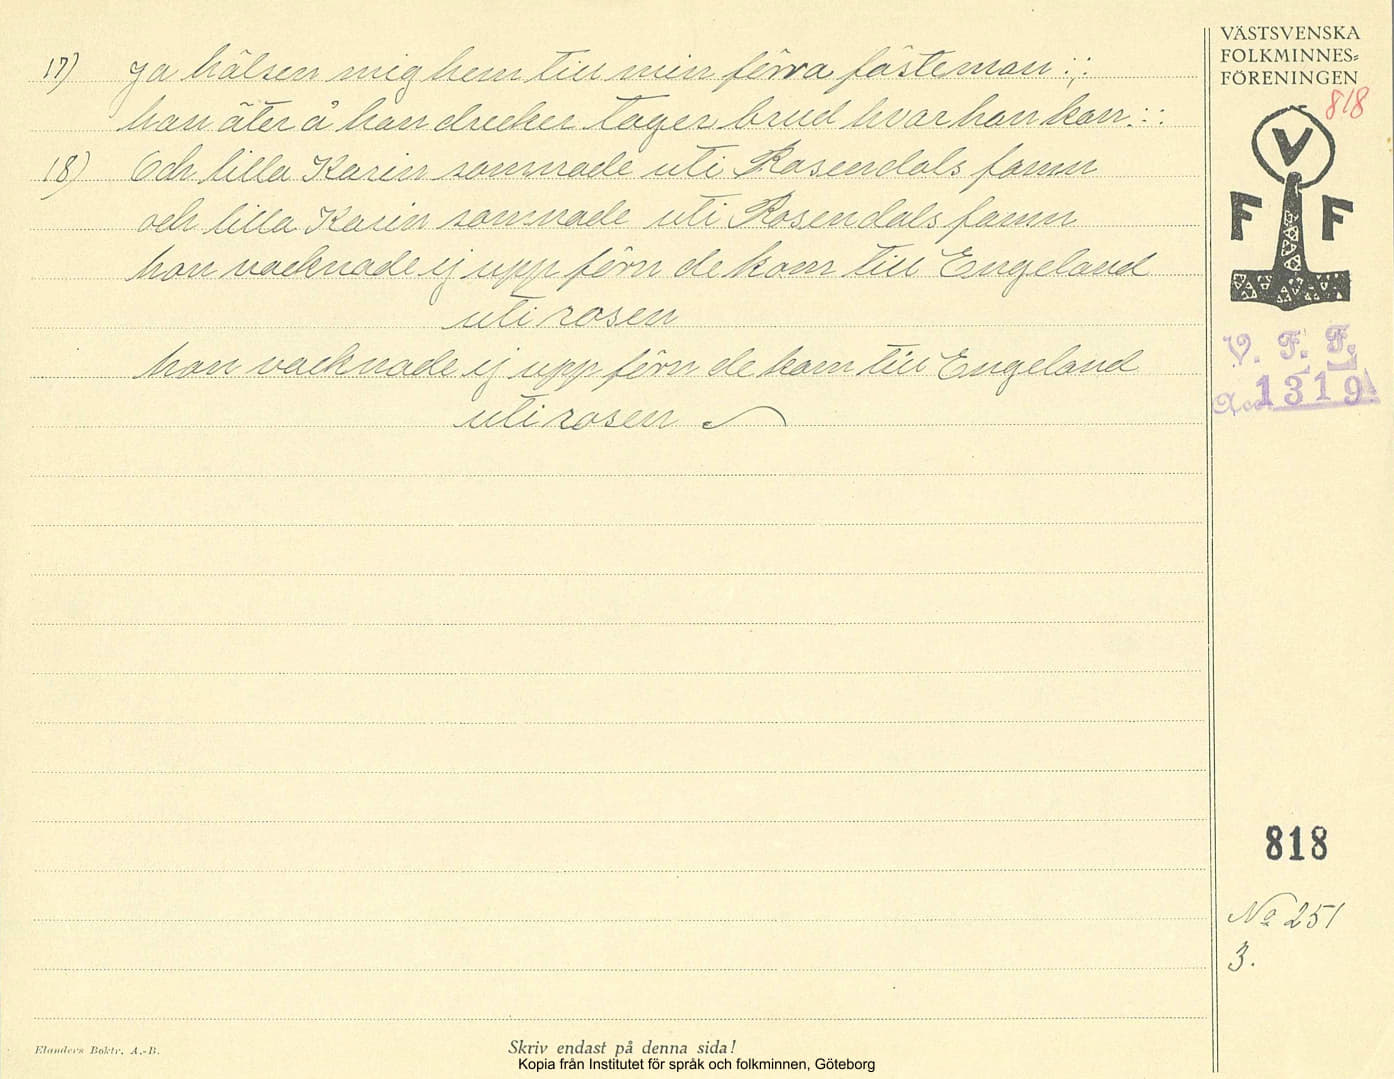 17) Ja hälsen mig hem till min förra fästeman :,:
han äter å han drecker tager brud hvar han kan :,:
18) Och lilla Karin somnade uti Rosendals famn
och lilla Karin somnade uti Rosendals famn
hon vacknade ej upp förn de kom till Engeland
uti rosen
hon vacknade ej upp förn de kom till Engeland
uti rosen
VÄSTSVENSKA
FOLKMINNES-
FÖRENINGEN
818
V
F F
V. F. F.
Acc. 1319
818
No 251
3.
Elanders Boktr. A.-B.
Skriv endast på denna sida!
Kopia från Institutet för språk och folkminnen, Göteborg